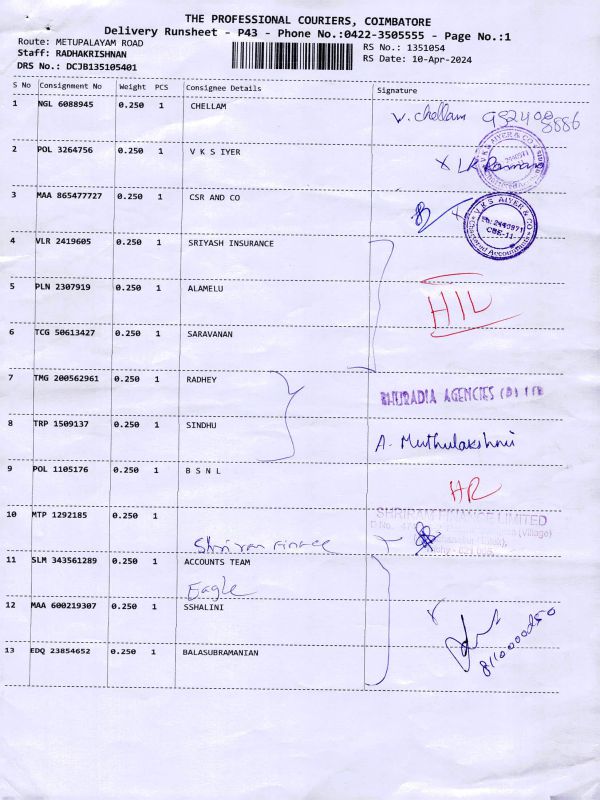 THE PROFESSIONAL COURIERS, COIMBATORE
Delivery Runsheet - P43 - Phone No.:0422-3505555 - Page No.:1
Route: METUPALAYAM ROAD
RS No.: 1351054
Staff: RADHAKRISHNAN
RS Date: 10-Apr-2024
DRS No.: DCJB135105401
S No Consignment No Weight PCS Consignee Details Signature
1 NGL 6088945 0.250 1 CHELLAM V. Chellam
2 POL 3264756 0.250 1 V K S IYER
V K S AIYER & CO
3 MAA 865477727 0.250 1 CSR AND CO
V K S AIYER & CO
Ph: 2440971
CBE-11
Chartered Accountants
4 VLR 2419605 0.250 1 SRIYASH INSURANCE
5 PLN 2307919 0.250 1 ALAMELU
HIL
6 TCG 50613427 0.250 1 SARAVANAN
7 TMG 200562961 0.250 1 RADHEY
BHURADIA AGENCIES (P) LTD
8 TRP 1509137 0.250 1 SINDHU A. Muthulakshmi
9 POL 1105176 0.250 1 B S N L
HR
10 MTP 1292185 0.250 1
SHRIRAM FINANCE LIMITED
Shriram Finace
11 SLM 343561289 0.250 1 ACCOUNTS TEAM
Eagle
12 MAA 600219307 0.250 1 SSHALINI
8110000250
13 EDQ 23854652 0.250 1 BALASUBRAMANIAN